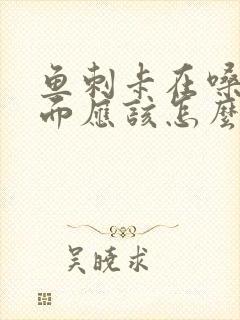 鱼刺卡在嗓
而应该怎么
吴晓求